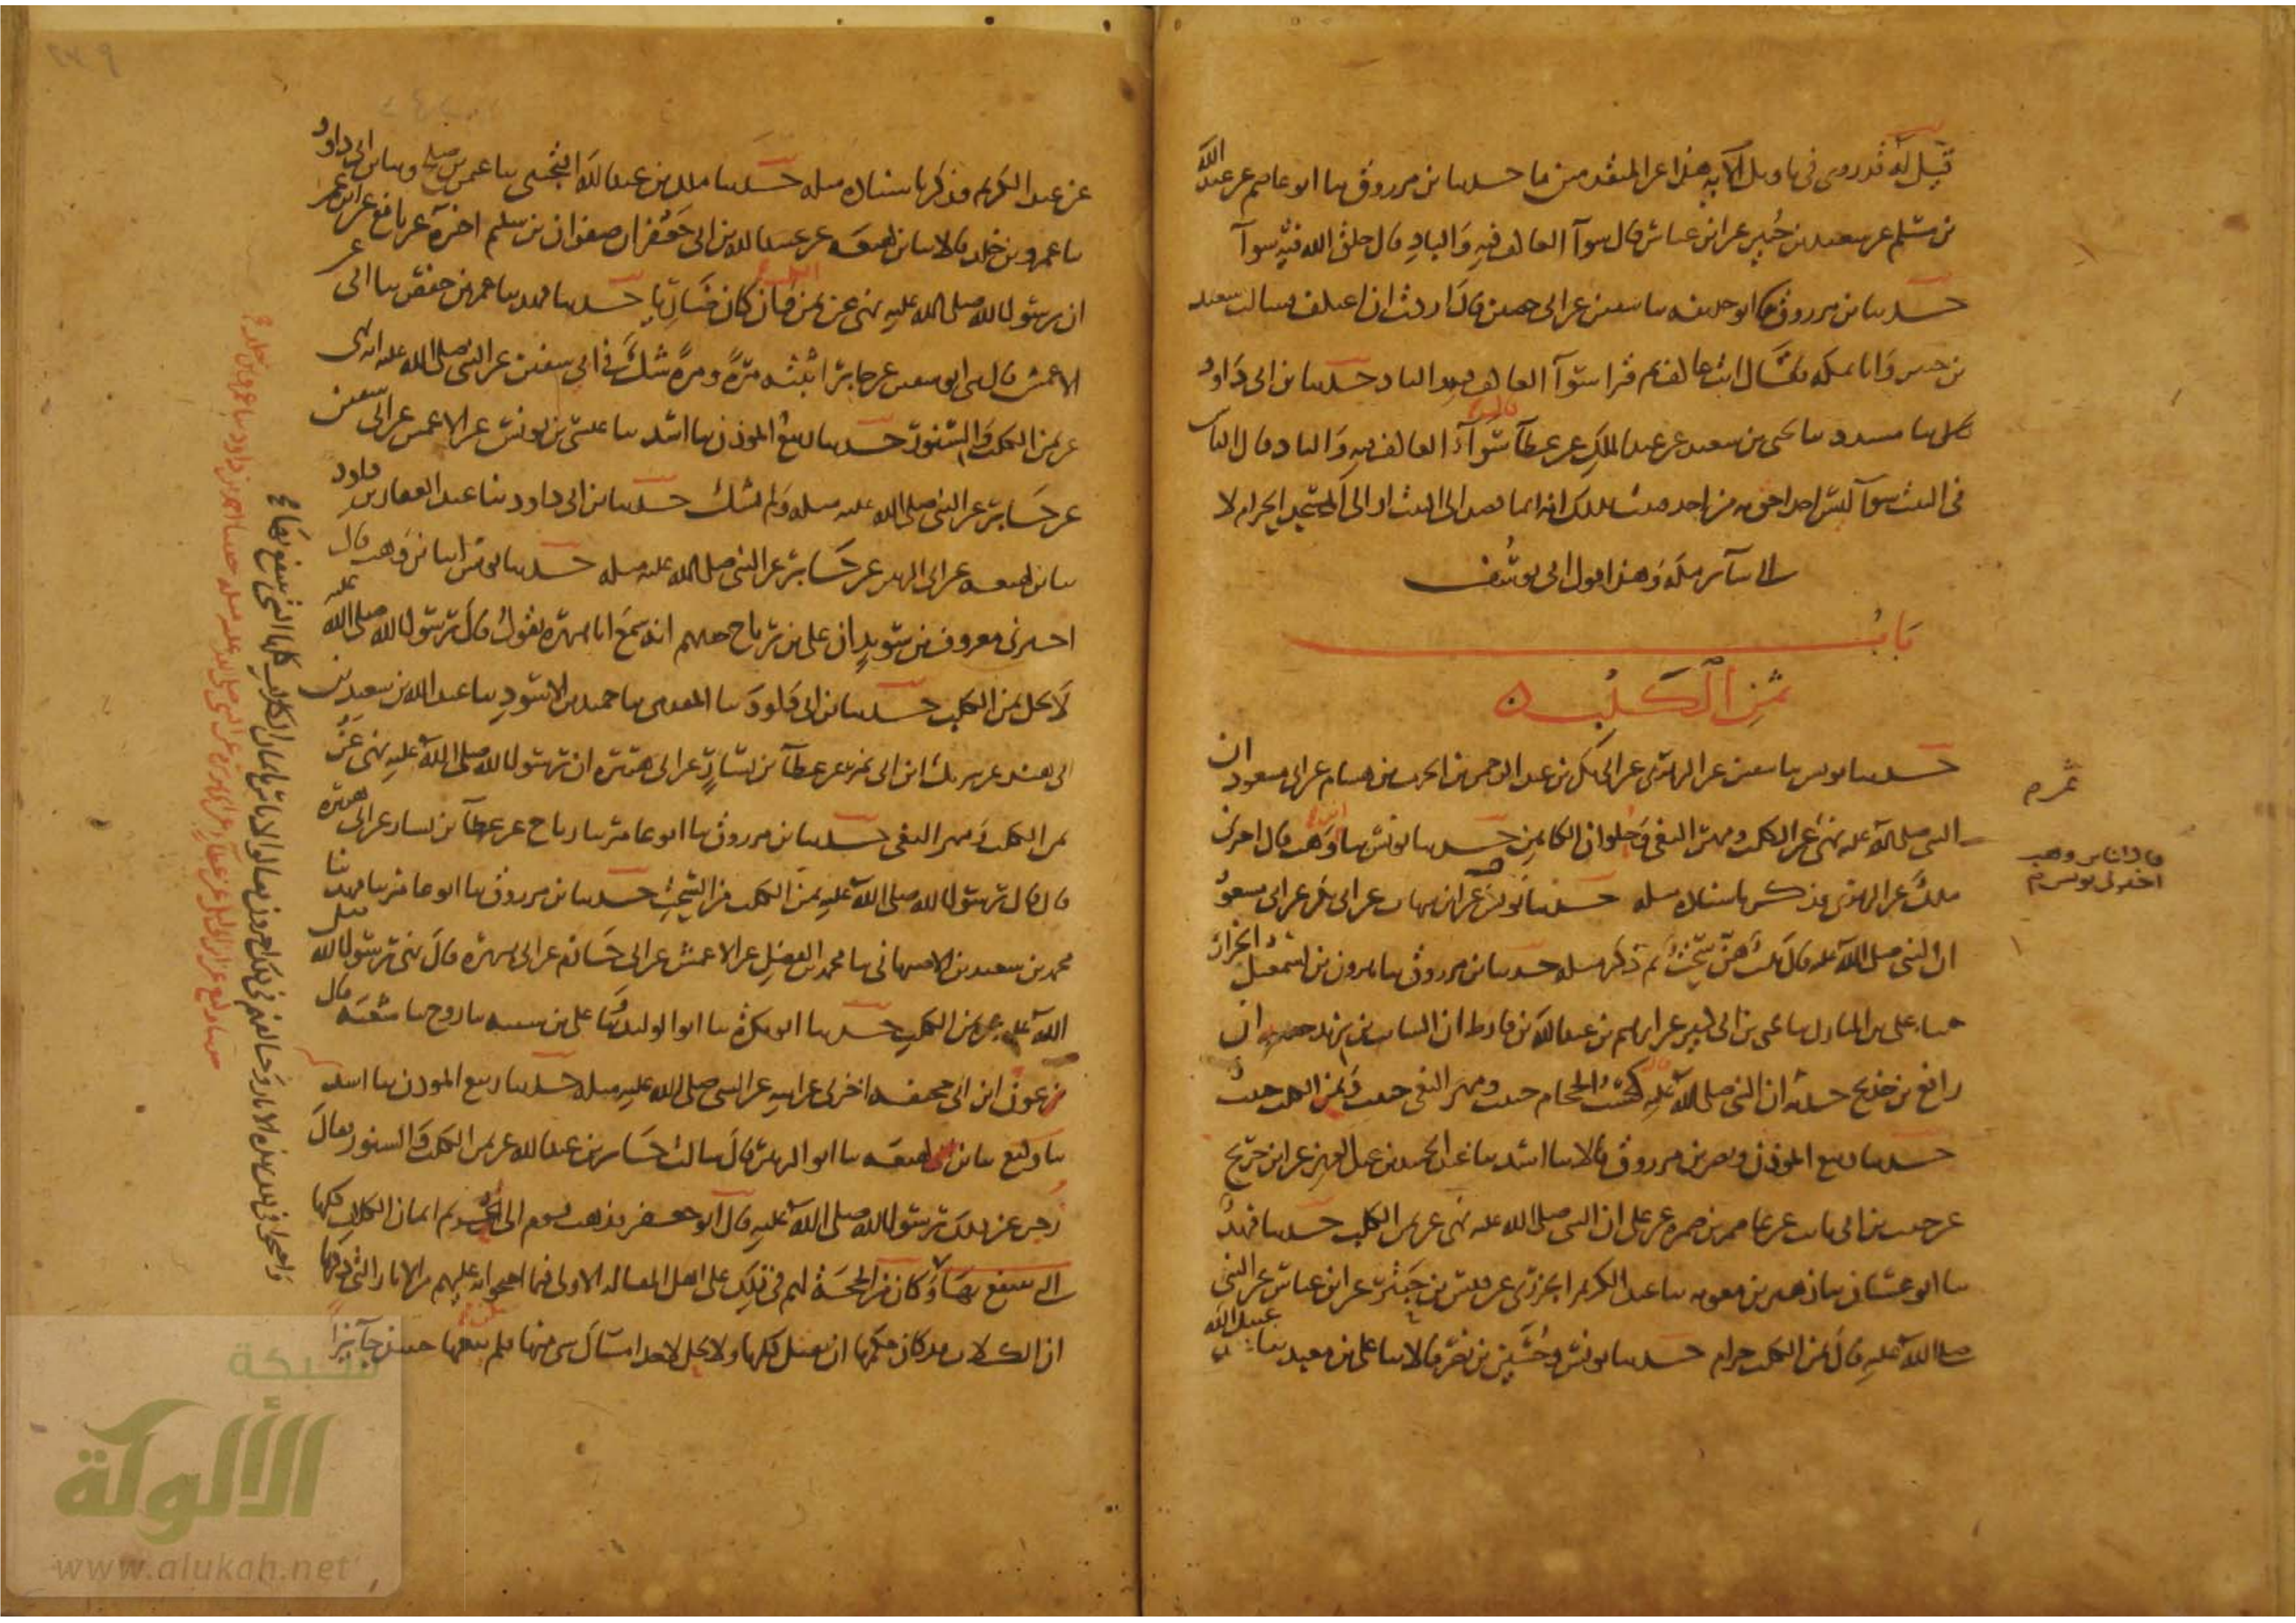 قيل له قد روي في تاويل الآية هذا عن المتقدمين ما حدثنا ابن مرزوق ثنا ابو عاصم عن عبد الله
بن مسلم عن سعيد بن جبير عن ابن عباس قال سوآ العاكف فيه والباد قال خلق الله فيه سوآ
حدثنا ابن مرزوق ثنا ابو حذيفة ثنا سفين عن ابي حصين قال اردت ان اعتكف فسالت سعيد
بن جبير وانا بمكة فقال انت عاكف ثم قرا سوآ العاكف فيه والباد حدثنا ابن ابي داود
ثنا مسدد ثنا يحيى بن سعيد عن عبد الملك عن عطآ سوآء العاكف فيه والباد قال الناس
في البيت سوآ ليس احد احق به من احد فثبت بذلك انه انما قصد الى البيت او الى المسجد الحرام لا
الى سآئر مكة وهذا قول ابي يوسف
باب
ثمن الكلب
حدثنا يونس ثنا سفين عن الزهري عن ابي بكر بن عبد الرحمن بن الحرث بن هشام عن ابي مسعود ان
النبي صلى الله عليه نهى عن ثمن الكلب ومهر البغي وحلوان الكاهن حدثنا يونس ثنا ابن وهب قال اخبرني
ملك عن الزهري فذكر باسناده مثله حدثنا يونس عن ابن شهاب عن ابي بكر عن ابي مسعود
ان النبي صلى الله عليه قال ثلث هن سحت ثم ذكر مثله حدثنا ابن مرزوق ثنا هرون بن اسمعيل الخزاز
ثنا علي بن المبارك ثنا يحيى بن ابي كثير عن ابرهيم بن عبد الله بن قارظ ان السايب بن يزيد حدثه ان
رافع بن خديج حدثه ان النبي صلى الله عليه قال كسب الحجام خبيث ومهر البغي خبيث وثمن الكلب خبيث
حدثنا ربيع المؤذن ونصر بن مرزوق قالا ثنا اسد ثنا عبد المجيد بن عبد العزيز عن ابن جريج
عن حبيب بن ابي ثابت عن عاصم بن ضمرة عن علي ان النبي صلى الله عليه نهى عن ثمن الكلب حدثنا فهد
ثنا ابو غسان ثنا زهير بن معوية ثنا عبد الكريم الجزري عن قيس بن حبتر عن ابن عباس عن النبي
صلى الله عليه قال ثمن الكلب حرام حدثنا يونس وحسين بن نصر قالا ثنا علي بن معبد ثنا عبيد الله
ثمن
قال انا ابن وهب
اخبرني يونس
عن عبد الكريم فذكر باسناده مثله حدثنا ملك بن عبد الله التجيبي ثنا عثمن بن صلح وثنا ابن ابي داود
ثنا عمرو بن خلد قالا ثنا ابن لهيعة عن عبيد الله بن ابي جعفر ان صفوان بن سليم اخبره عن نافع عن ابن عمر
ان رسول الله صلى الله عليه نهى عن ثمن الكلب وان كان ضاريا حدثنا فهد ثنا عمر بن حفص ثنا ابي عن
الاعمش قال ثنى ابو سفين عن جابر اثبته مرة ومرة شك في ابي سفين عن النبي صلى الله عليه انه نهى
عن ثمن الكلب والسنور حدثنا ربيع المؤذن ثنا اسد ثنا عيسى بن يونس عن الاعمش عن ابي سفين
عن جابر عن النبي صلى الله عليه مثله ولم يشك حدثنا ابن ابي داود ثنا عبد الغفار بن داود
ثنا ابن لهيعة عن ابي الزبير عن جابر عن النبي صلى الله عليه مثله حدثنا يونس انا ابن وهب قال
اخبرني معروف بن سويد ان علي بن رباح حدثهم انه سمع ابا هريرة يقول قال رسول الله صلى الله عليه
لا يحل ثمن الكلب حدثنا ابن ابي داود ثنا المقدمي ثنا حميد بن الاسود ثنا عبد الله بن سعيد بن
ابي هند عن شريك ابن ابي نمر عن عطآ بن يسار عن ابي هريرة ان رسول الله صلى الله عليه نهى عن
ثمن الكلب ومهر البغي حدثنا ابن مرزوق ثنا ابو عامر ثنا رباح عن عطآ بن يسار عن ابي هريرة
قال قال رسول الله صلى الله عليه ثمن الكلب من السحت حدثنا ابن مرزوق ثنا ابو عامر ثنا فهد ثنا
محمد بن سعيد بن الاصبهاني ثنا محمد ابن الفضيل عن الاعمش عن ابي حازم عن ابي هريرة قال نهى رسول الله صلى
الله عليه عن ثمن الكلب حدثنا ابو بكرة ثنا ابو الوليد وثنا علي بن شيبة ثنا روح ثنا شعبة قال
عون ابن ابي جحيفة اخبرني عن ابيه عن النبي صلى الله عليه مثله حدثنا ربيع المؤذن ثنا اسد
ثنا وكيع ثنا ابن لهيعة ثنا ابو الزبير قال سالت جابر بن عبد الله عن ثمن الكلب والسنور فقال
زجر عن ذلك رسول الله صلى الله عليه قال ابو جعفر فذهب قوم الى تحريم اثمان الكلاب كلها
التي ينتفع بها وكان من الحجة لهم في ذلك على اهل المقالة الاولى فيما احتجوا به عليهم من الاثار التي ذكرنا
ان الكلاب قد كان حكمها ان تقتل كلها ولا يحل لاحد امساك شي منها فلم يكن بيعها حينئذ جآئزا
واحتجوا في ذلك بهذه الاثار وخالفهم في ذلك اخرون فقالوا لا باس باثمان الكلاب كلها التي ينتفع بها
شبكة
الألوكة
www.alukah.net